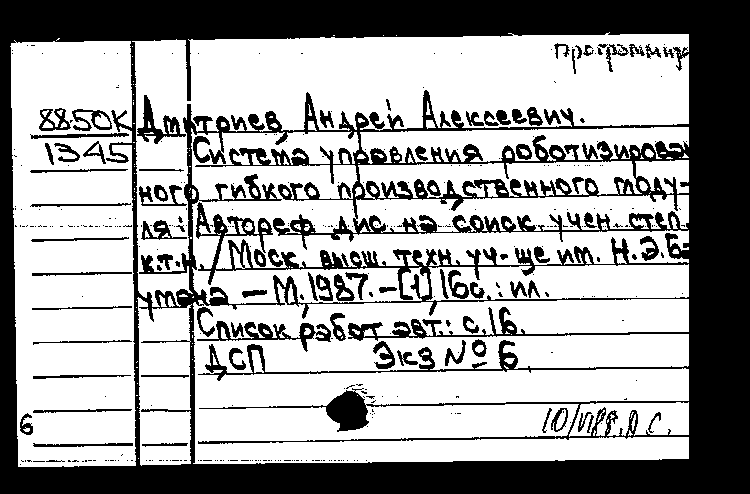 программир
88-50К Дмитриев Андрей Алексеевич.
1345 Система управления роботизирован
ного гибкого производственного моду-
ля: Автореф дис. на соиск. учен. степ.
к.т.н. / Моск. высш. техн. уч-ще им. Н.Э.Ба
умана. — М. 1987. – [1] 16с.: ил.
Список работ авт.: с.16.
ДСП Экз № 6
6 10/VI88. А С.